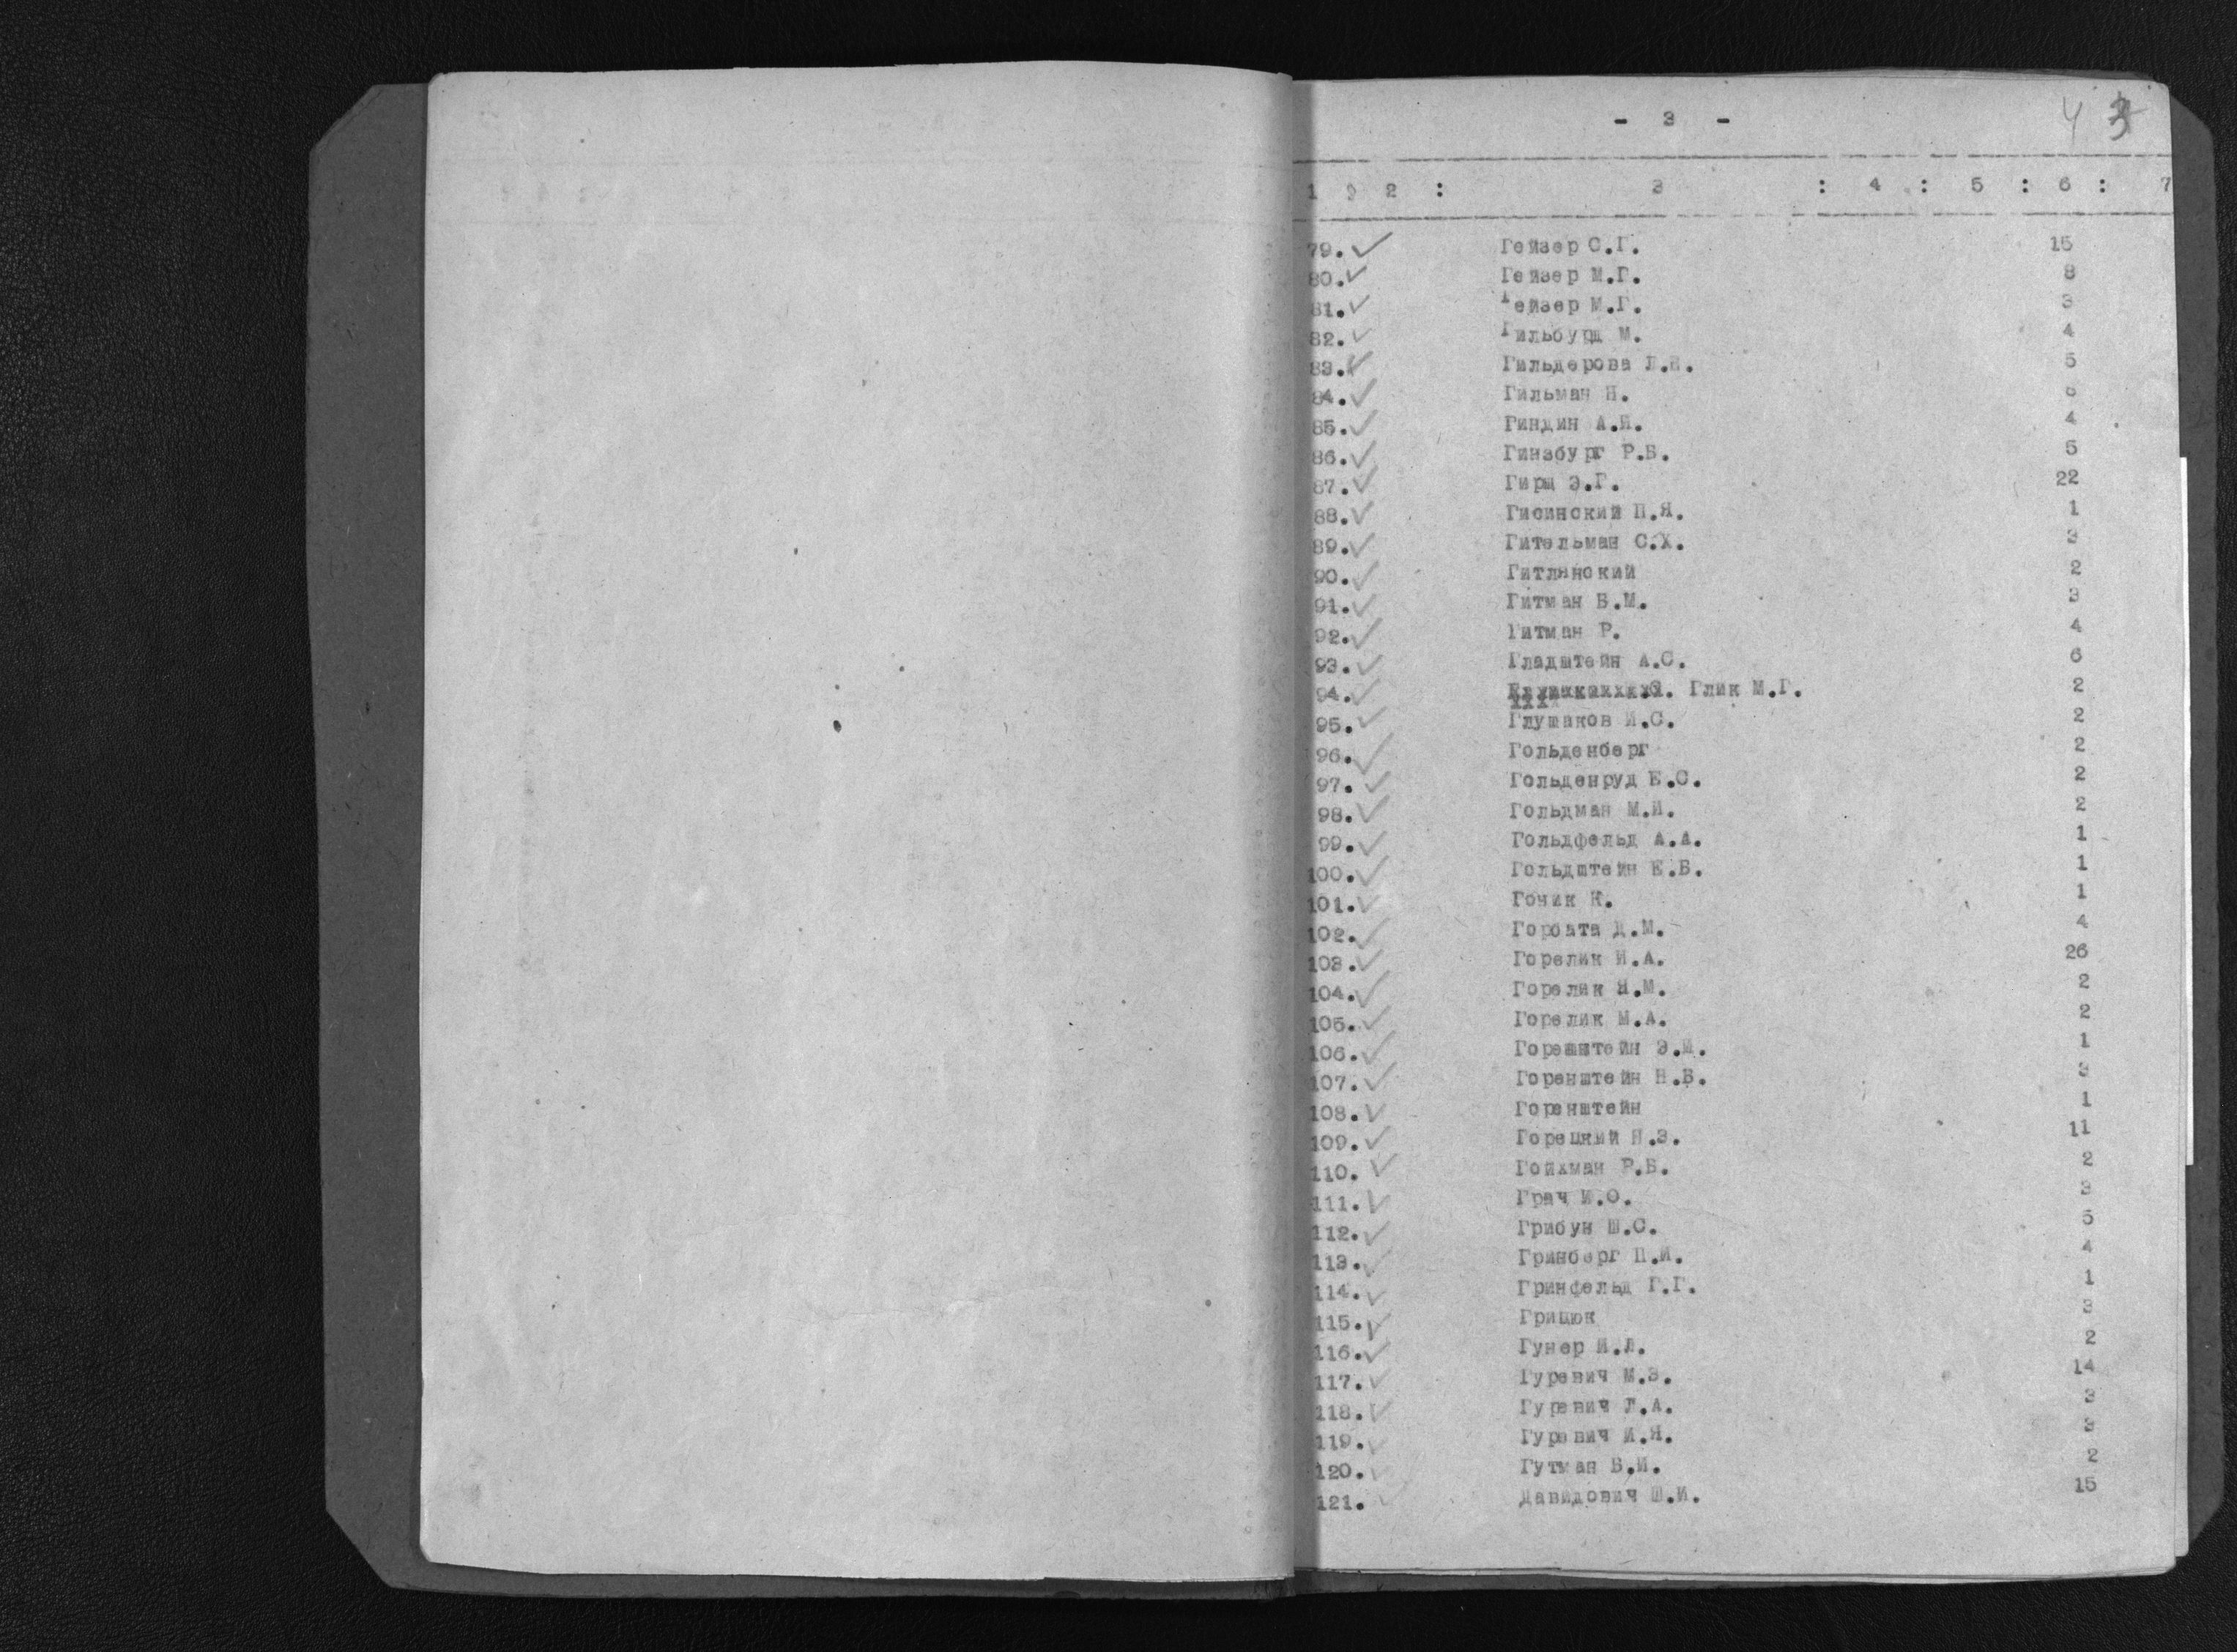 - 3 -
1 : 2 : 3 : 4 : 5 : 6 : 7
79. ✓ Гейзер С.Г. 15
80. ✓ Гейзер М.Г. 8
81. ✓ Гейзер М.Г. 3
82. ✓ Гильбурш М. 4
83. ✓ Гильдерова 5
84. ✓ Гильман Н.
85. ✓ Гиндин А.Н. 4
86. ✓ Гинзбург Р.Б. 5
87. ✓ Гирш Э.Г. 22
88. ✓ Гисинский П.Я. 1
89. ✓ Гительман С.Х. 3
90. ✓ Гитлянский 2
91. ✓ Гитман Б.М. 3
92. ✓ Гитман Р. 4
93. ✓ Гладштейн А.С. 6
94. ✓ Глик М.Г. 2
95. ✓ Глушаков И.С. 2
96. ✓ Гольденберг 2
97. ✓ Гольденруд Е.С. 2
98. ✓ Гольдман М.И. 2
99. ✓ Гольдфельд А.А. 1
100. ✓ Гольдштейн Е.Б. 1
101. ✓ Гочик К. 1
102. ✓ Горбата Д.М. 4
103. ✓ Горелик И.А. 26
104. ✓ Горелик Я.М. 2
105. ✓ Горелик М.А. 2
106. ✓ Горенштейн Э.М. 1
107. ✓ Горенштейн Н.Б. 3
108. ✓ Горенштейн 1
109. ✓ Горецкий Н.З. 11
110. ✓ Гойхман Р.Б. 2
111. ✓ Грач И.О. 3
112. ✓ Грибун Ш.С. 5
113. ✓ Гринберг П.И. 4
114. ✓ Гринфельд Г.Г. 1
115. ✓ Грицюк 3
116. ✓ Гунер И.Л. 2
117. ✓ Гуревич М.З. 14
118. ✓ Гуревич Л.А. 3
119. ✓ Гуревич И.Я. 3
120. ✓ Гутман В.И. 2
121. ✓ Давидович Ш.И. 15